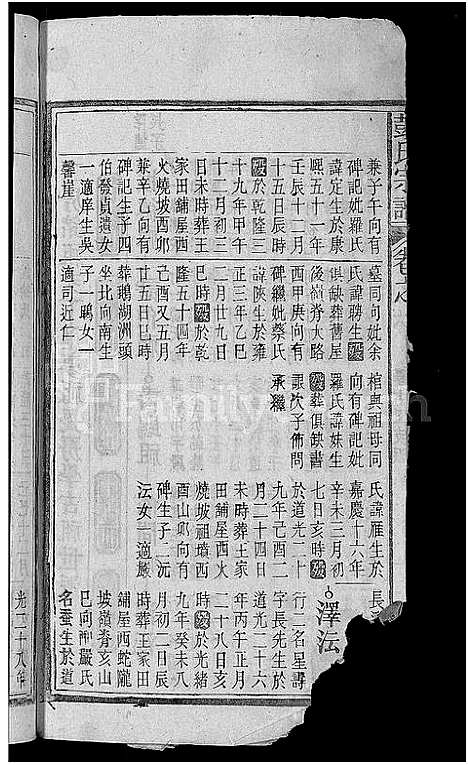 彭氏宗譜
兼子午向有
碑記妣羅氏
諱定生於康
熙五十一年
壬辰十二月
十五日辰時
歿於乾隆三
十九年甲午
十二月初三
日未時葬王
家田舖屋西
火燒坡酉卯
兼辛乙向有
碑記生子四
伯發貞遺女
一適庠生吳
馨崖
墓同向妣余
氏諱聘生歿
俱缺葬舊屋
後嶺脊大路
西甲庚向有
碑繼妣蔡氏
諱陝生於雍
正三年乙巳
二月廿九日
巳時歿於乾
隆五十四年
己酉又五月
廿五日巳時
葬鵝湖洲頭
坐北向南生
子一瑪女一
適司近仁
棺與祖母同
向有碑記妣
羅氏諱妹生
歿葬俱缺嗇
誤次子佈問
承繼
氏諱雁生於
嘉慶十六年
辛未三月初
七日亥時歿
於道光二十
九年己酉二
月二十四日
未時葬王家
田舖屋西火
燒坡祖墳西
酉山卯向有
碑生子二沅
沄女一適嚴
長
澤沄
行二名星壽
字長先生於
道光二十六
年丙午正月
時歿於光緒
九年癸未八
月初二日辰
時葬王家田
舖屋西蛇隴
坡嶺脊亥山
巳向禈嚴氏
名奎生於道
光二十八年